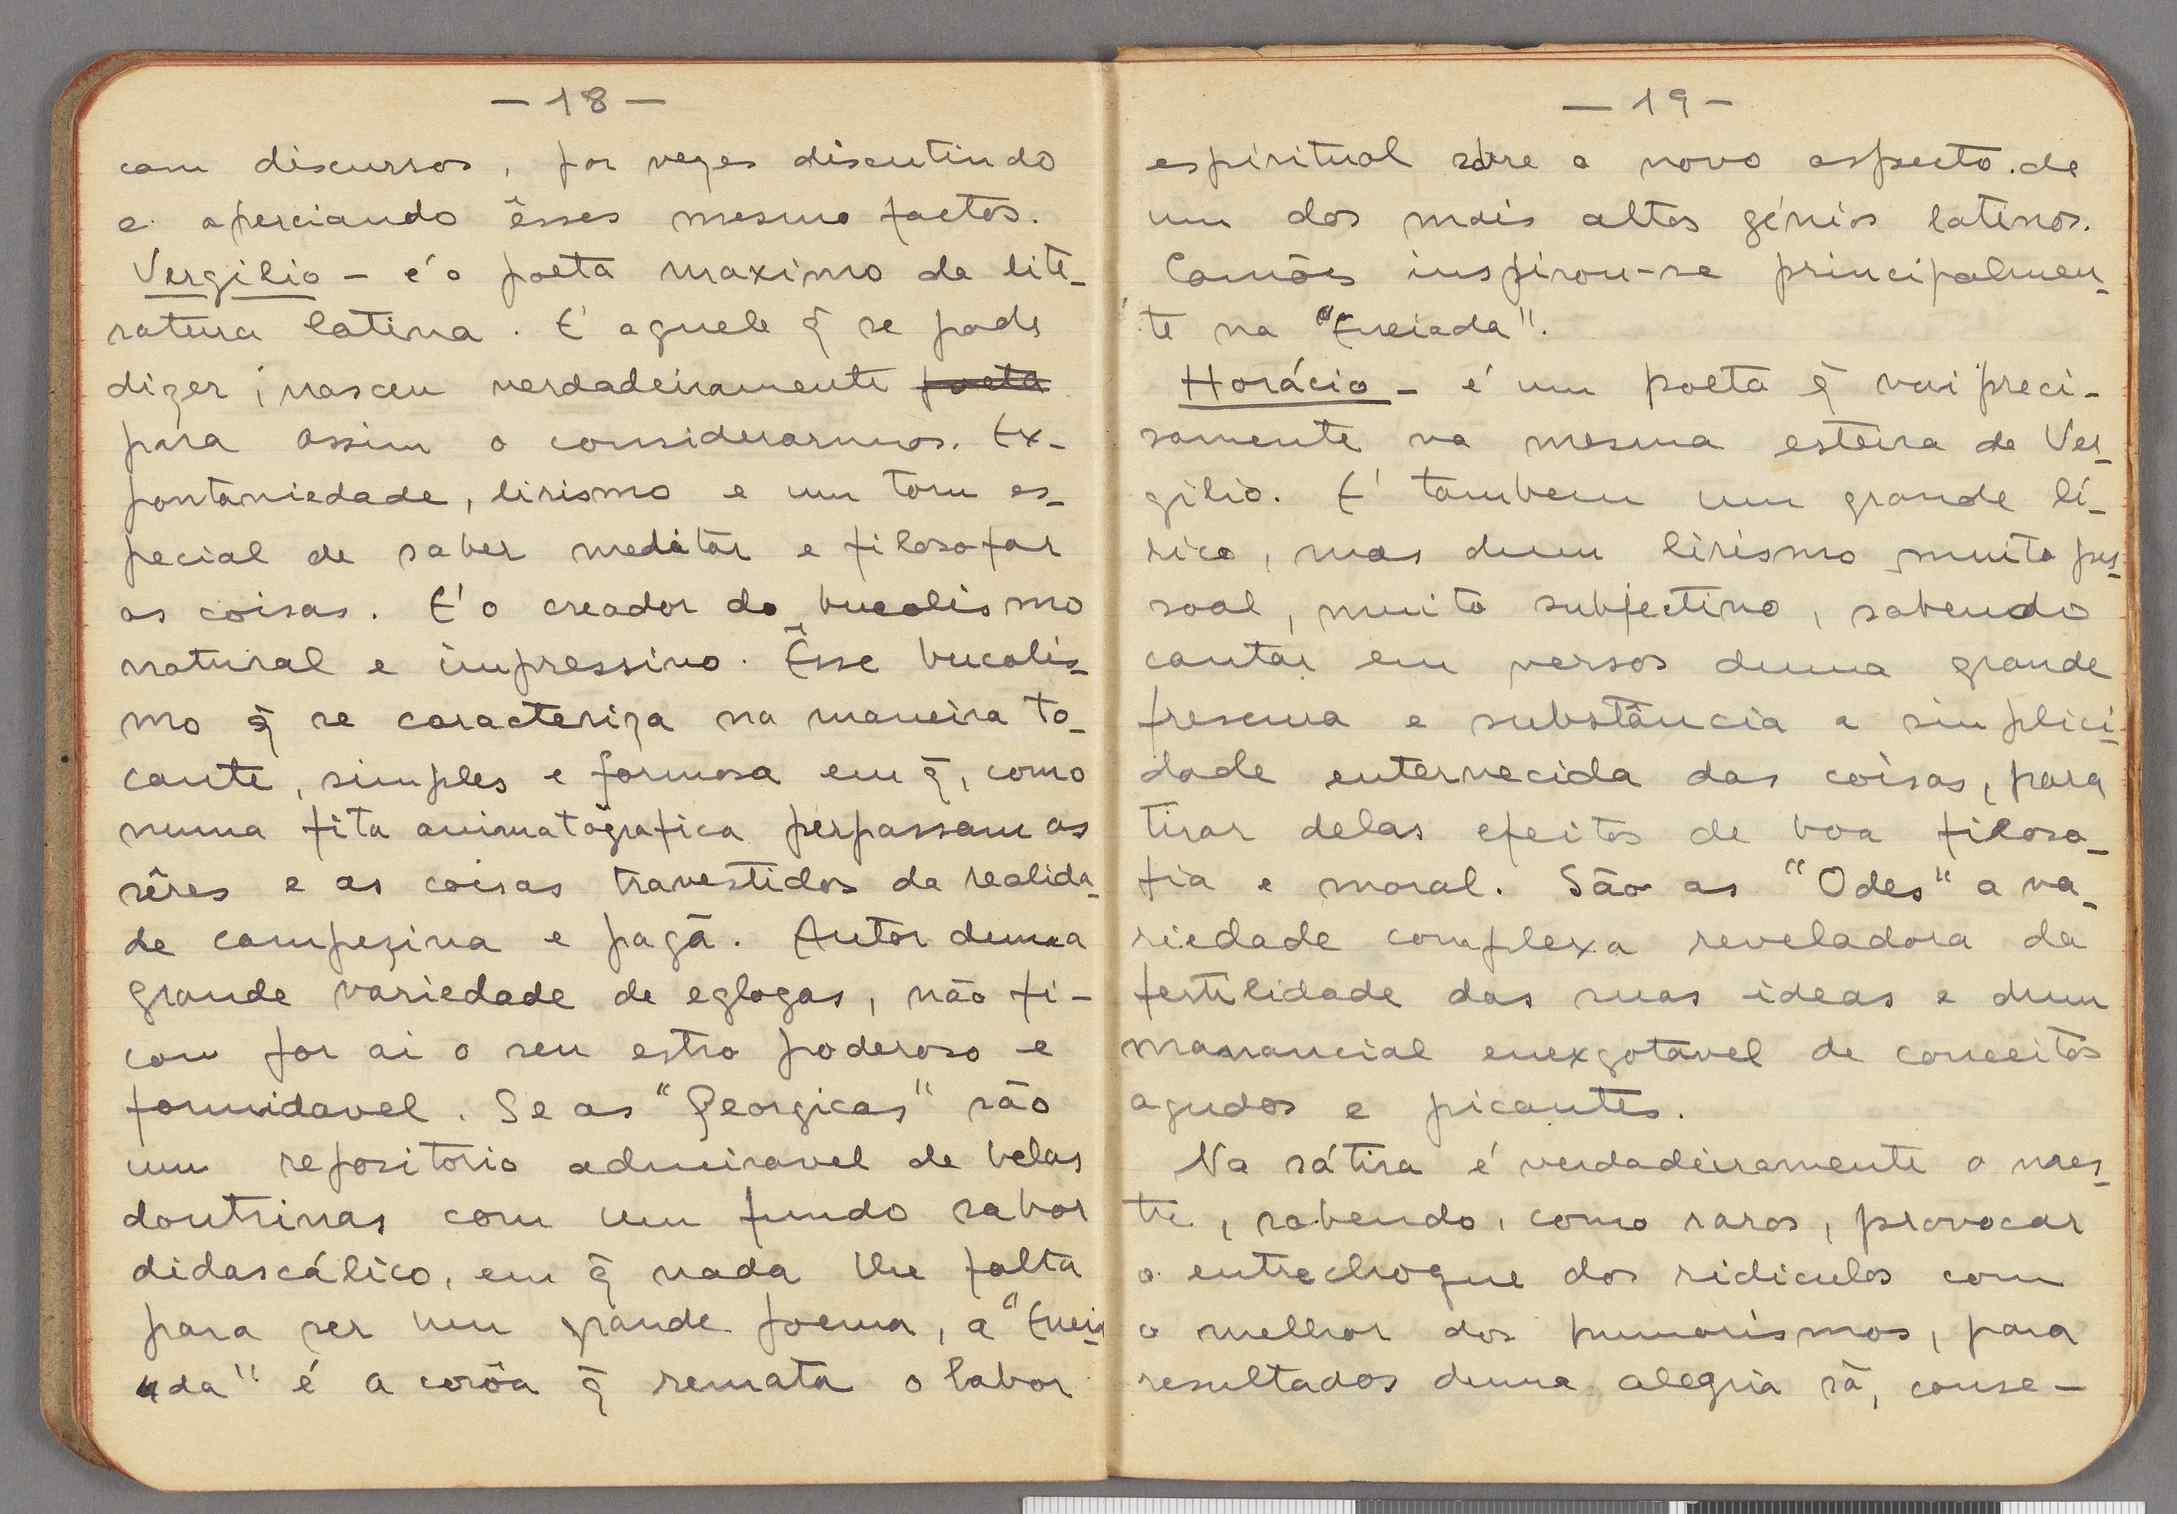 — 18 —
com discursos, por vezes discutindo
e aperciando êsses mesmo factos.
Vergilio – é o poeta maximo da lite-
ratura latina. E' aquele q̃ se pode
dizer, nasceu verdadeiramente poeta
para assim o considerarmos. Ex-
pontaniedade, lirismo e um tom es-
pecial de saber meditar e filosofar
as coisas. E' o creador do bucolismo
natural e impressivo. Êsse bucolis-
mo q̃ se caracteriza na maneira to-
cante, simples e formosa em q̃, como
numa fita animatografica perpassam os
sêres e as coisas travestidos da realida-
de campezina e pagã. Autor duma
grande variedade de eglogas, não fi-
cou por ai o seu estro poderoso e
formidavel. Se as "Georgicas" são
um repositorio admiravel de belas
doutrinas com um fundo sabor
didascálico, em q̃ nada lhe falta
para ser um grande poema, a "Eneia-
"da" é a corôa q̃ remata o labor
— 19 —
espiritual sobre o novo aspecto de
um dos mais altos génios latinos.
Camões inspirou-se principalmen-
te na "Eneiada".
Horácio – é um poeta q̃ vai preci-
samente na mesma esteira de Ver-
gilio. E' tambem um grande lí-
rico, mas dum lirismo muito pes-
soal, muito subjectivo, sabendo
cantar em versos duma grande
frescura e substância a simplici-
dade enternecida das coisas, para
tirar delas efeitos de boa filoso-
fia e moral. São as "Odes" a va-
riedade complexa reveladora da
fertilidade das suas ideas e dum
manancial enexgotavel de conceitos
agudos e picantes.
Na sátira é verdadeiramente o mes-
tre, sabendo, como raros, provocar
o entrechoque dos ridiculos com
o melhor dos humorismos, para
resultados duma alegria sã, conse-